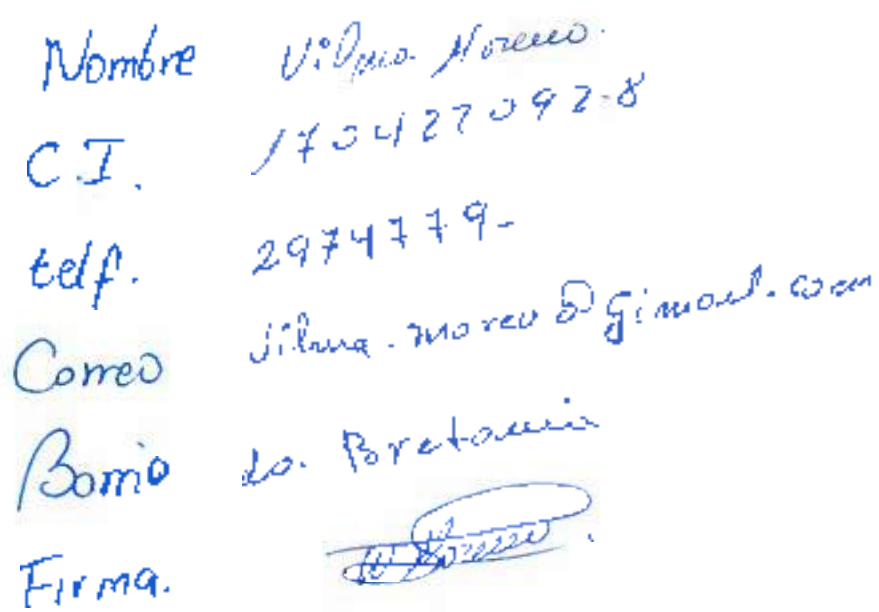 Nombre Vilma Moreno.
C.I. 170427092-8
telf. 2974779-
Correo vilma.moreu@gimail.com
Barrio La. Bretania
Firma.